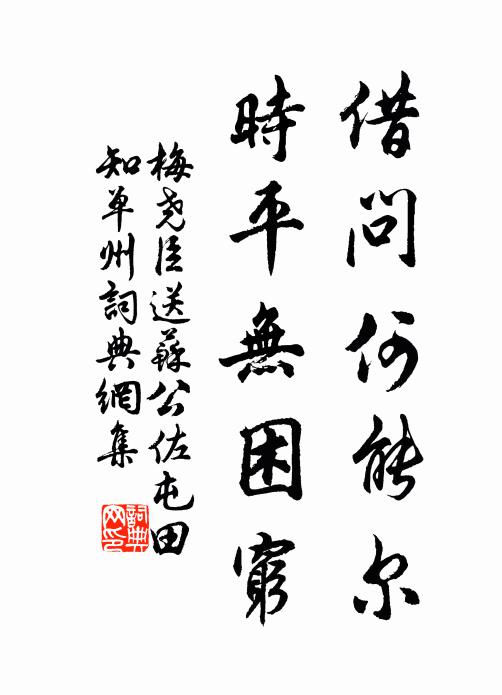 借問何能尔
時平無困窮
梅尧臣送蘇公佐屯田
知单州詞典網集
詞典网印